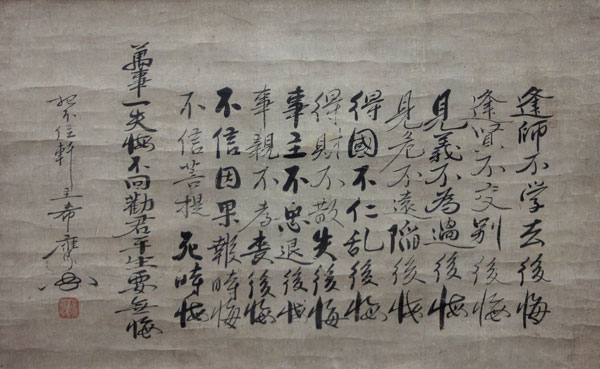 逢師不学去後悔
逢賢不交別後悔
見義不為過後悔
見危不遠陥後悔
得國不仁乱後悔
得財不散失後悔
事主不忠退後悔
事親不孝喪後悔
不信因果報時悔
不信菩提死時悔
萬事一失悔不回勸君平生要無悔
不住軒主希膺